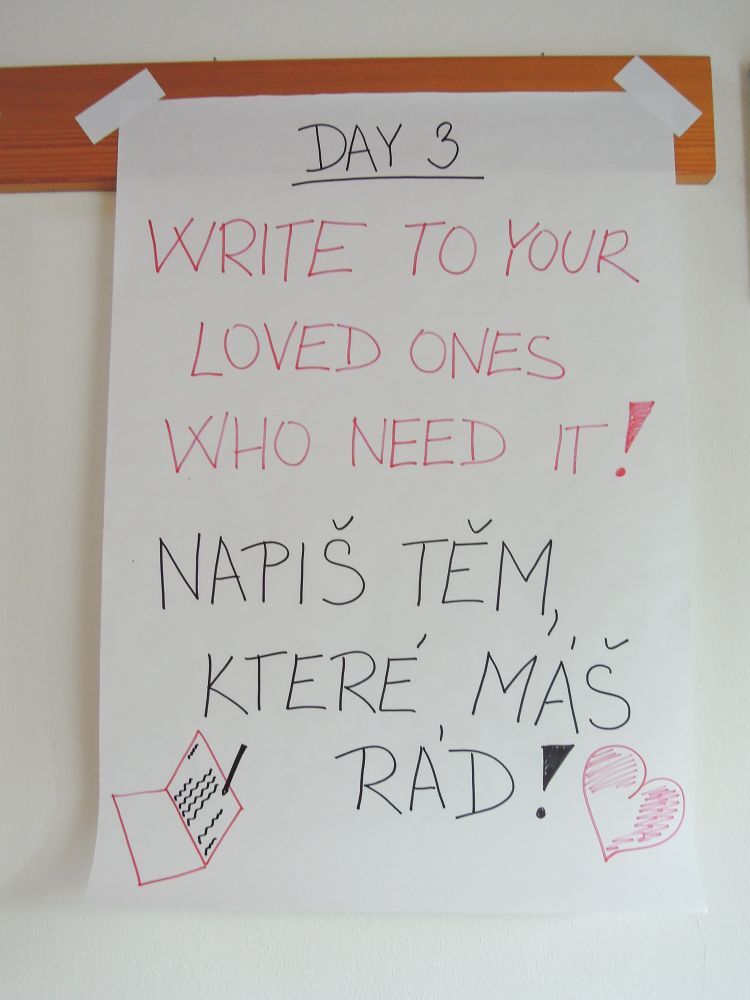 DAY 3
WRITE TO YOUR
LOVED ONES
WHO NEED IT!
NAPIŠ TĚM,
KTERÉ MÁŠ
RÁD!